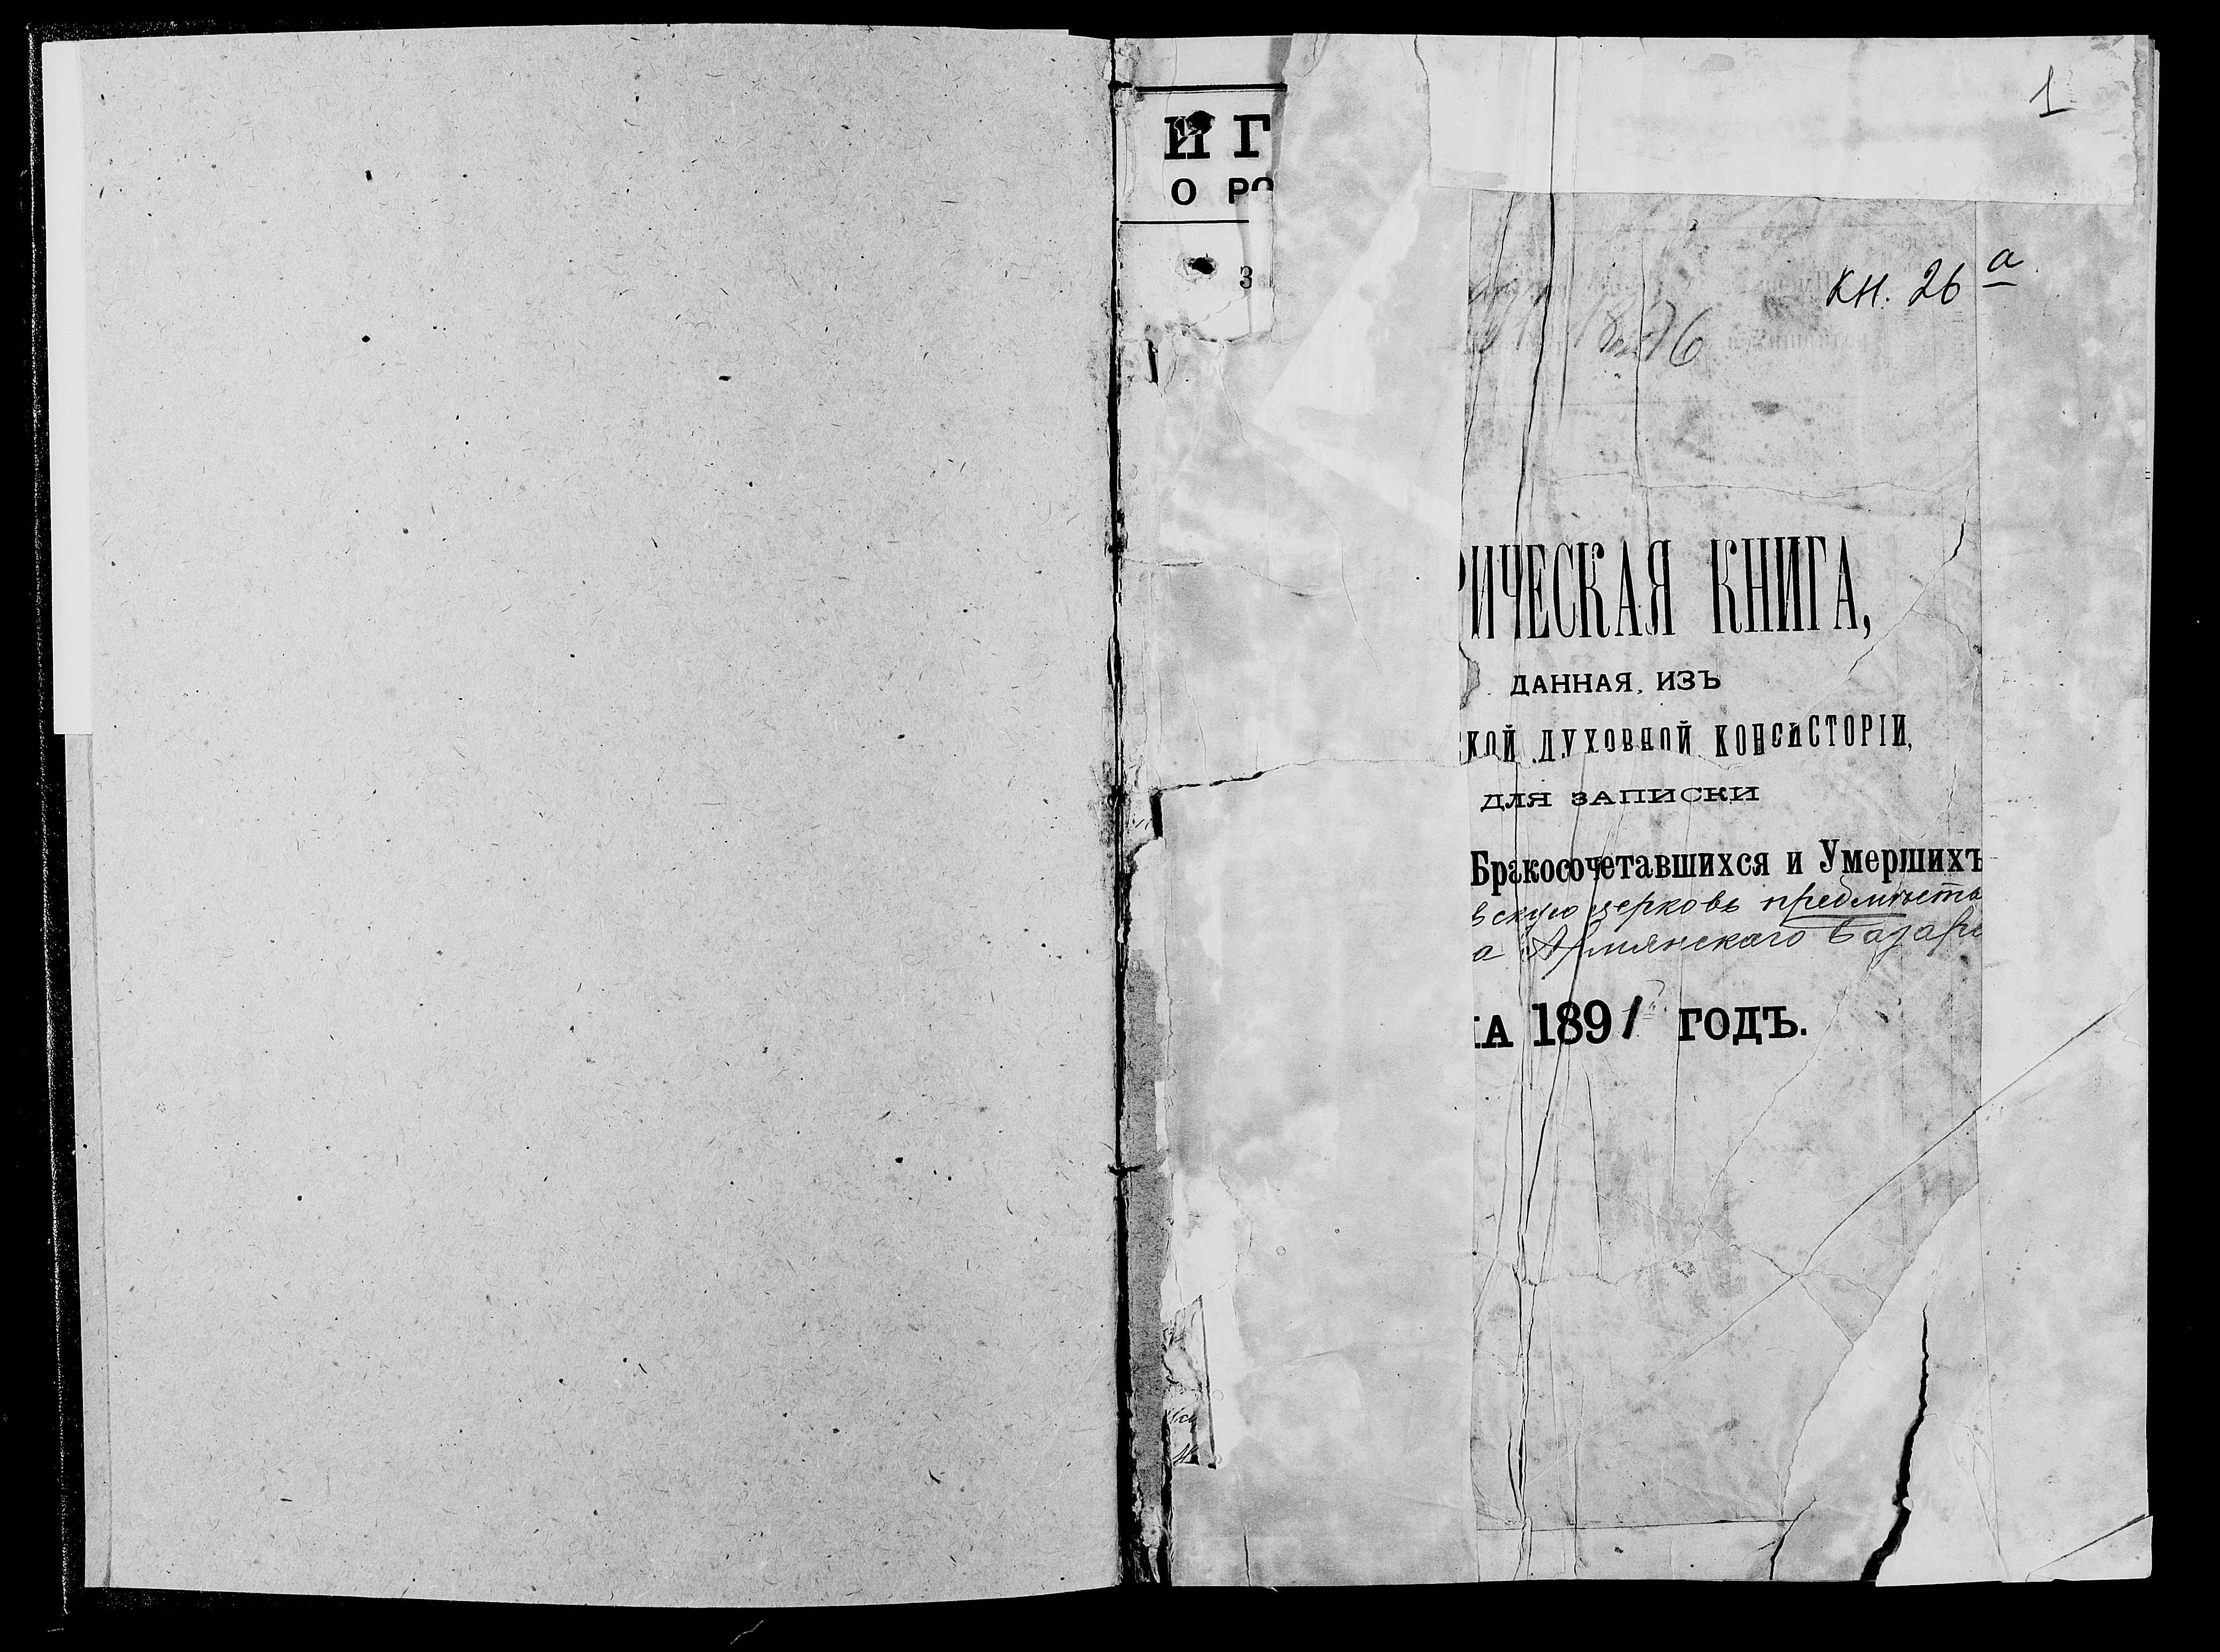 1
И Г
О РО
З
кн. 26 а
РИЧЕСКАЯ КНИГА,
ДАННАЯ, ИЗЪ
КОЙ ДУХОВНОЙ КОНСИСТОРІИ,
ДЛЯ ЗАПИСКИ
Бракосочетавшихся и Умершихъ
вскую церковь предмѣстья
а Армянскаго Базара
НА 1891 ГОДЪ.